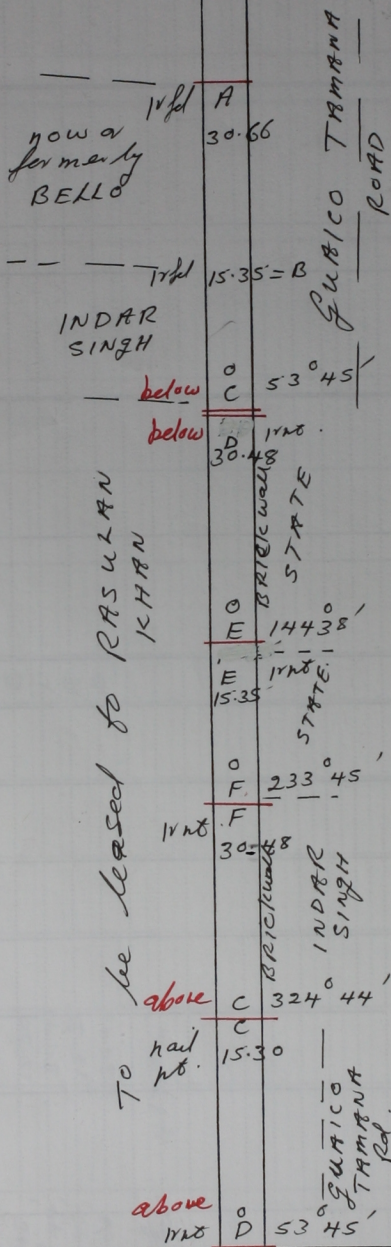 Irfd A
30.66
now or
formerly
BELLO
GUAICO TAMANA
ROAD
Irfd 15.35 = B
INDAR
SINGH
O
below C 53°45'
below D Irnt.
30.48
BRICKwall
STATE
TO be leased to RASULAN
KHAN
O
E 144°38'
E Irnt
15.35
STATE.
O
F 233°45'
Irnt F
BRICKwall
INDAR
SINGH
above C 324°44'
C
nail
pt. 15.30
GUAICO
TAMANA
Rd.
above O
Irnt D 53°45'